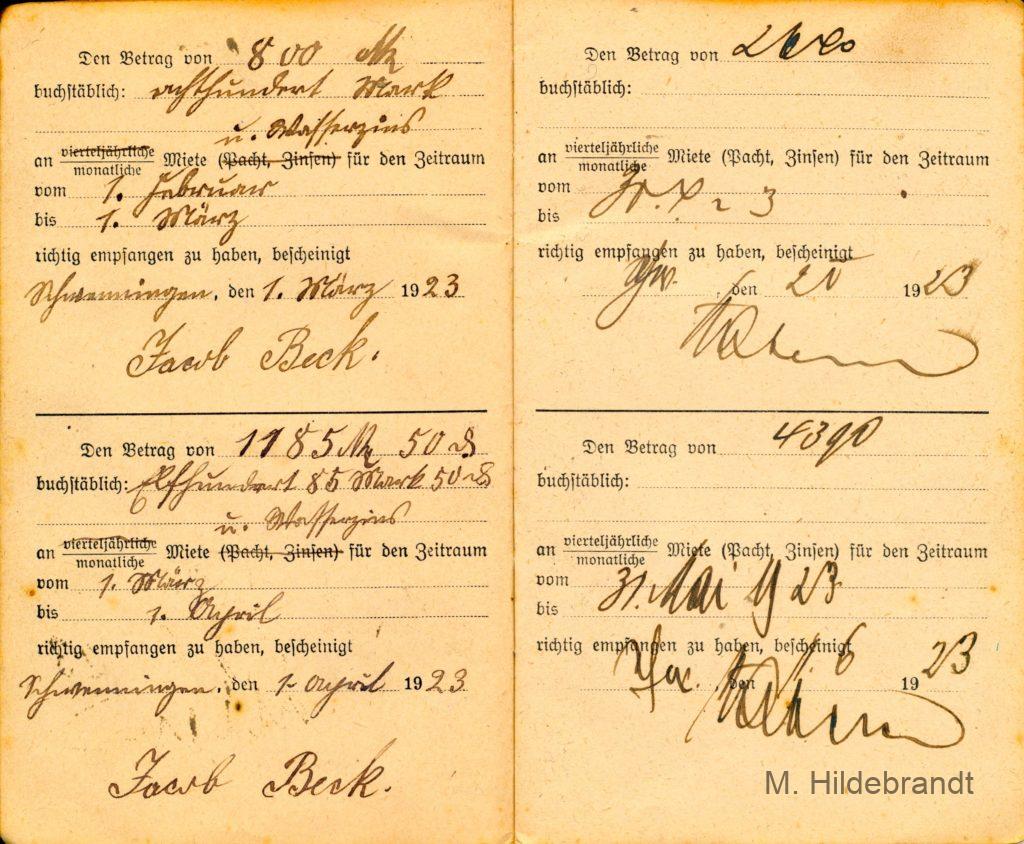 Den Betrag von 800 M
buchstäblich: achthundert Mark
u. Wasserzins
an vierteljährliche
monatliche Miete (Pacht, Zinsen) für den Zeitraum
vom 1. Februar
bis 1. März
richtig empfangen zu haben, bescheinigt
Schwenningen, den 1. März 1923
Jacob Beck.
Den Betrag von 1185 M 50 ₰
buchstäblich: Elfhundert 85 Mark 50 ₰
u. Wasserzins
an vierteljährliche
monatliche Miete (Pacht, Zinsen) für den Zeitraum
vom 1. März
bis 1. April
richtig empfangen zu haben, bescheinigt
Schwenningen, den 1. April 1923
Jacob Beck.
Den Betrag von
buchstäblich:
an vierteljährliche
monatliche Miete (Pacht, Zinsen) für den Zeitraum
vom
bis
richtig empfangen zu haben, bescheinigt
den 1923
Den Betrag von 4390
buchstäblich:
an vierteljährliche
monatliche Miete (Pacht, Zinsen) für den Zeitraum
vom 31. Mai 1923
bis
richtig empfangen zu haben, bescheinigt
den 1. 6 1923
M. Hildebrandt